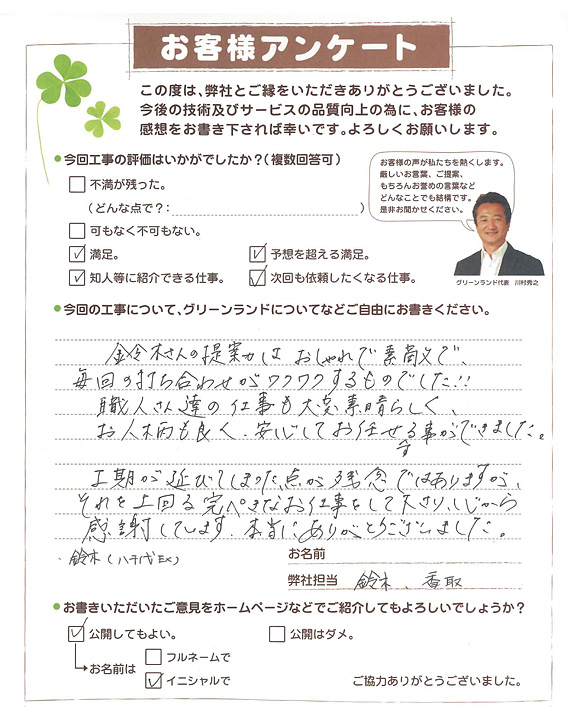 お客様アンケート
この度は、弊社とご縁をいただきありがとうございました。
今後の技術及びサービスの品質向上の為に、お客様の
感想をお書き下されば幸いです。よろしくお願いします。
今回工事の評価はいかがでしたか?(複数回答可)
不満が残った。
(どんな点で?: )
可もなく不可もない。
満足。
予想を超える満足。
知人等に紹介できる仕事。
次回も依頼したくなる仕事。
お客様の声が私たちを熱くします。
厳しいお言葉、ご提案、
もちろんお誉めの言葉など
どんなことでも結構です。
是非お聞かせください。
グリーンランド代表 川村秀之
今回の工事について、グリーンランドについてなどご自由にお書きください。
鈴木さんの提案力は おしゃれで素敵で、
毎回の打ち合わせがワクワクするものでした!!
職人さん達の仕事も大変素晴らしく、
お人柄も良く、安心してお任せする事ができました。
工期が延びてしまった点が残念ではありますが、
それを上回る完ぺきなお仕事をして下さり、心から
感謝しています。本当にありがとうございました。
・鈴木(八千代EX)
お名前
弊社担当 鈴木、香取
お書きいただいたご意見をホームページなどでご紹介してもよろしいでしょうか?
公開してもよい。
公開はダメ。
お名前は
フルネームで
イニシャルで
ご協力ありがとうございました。